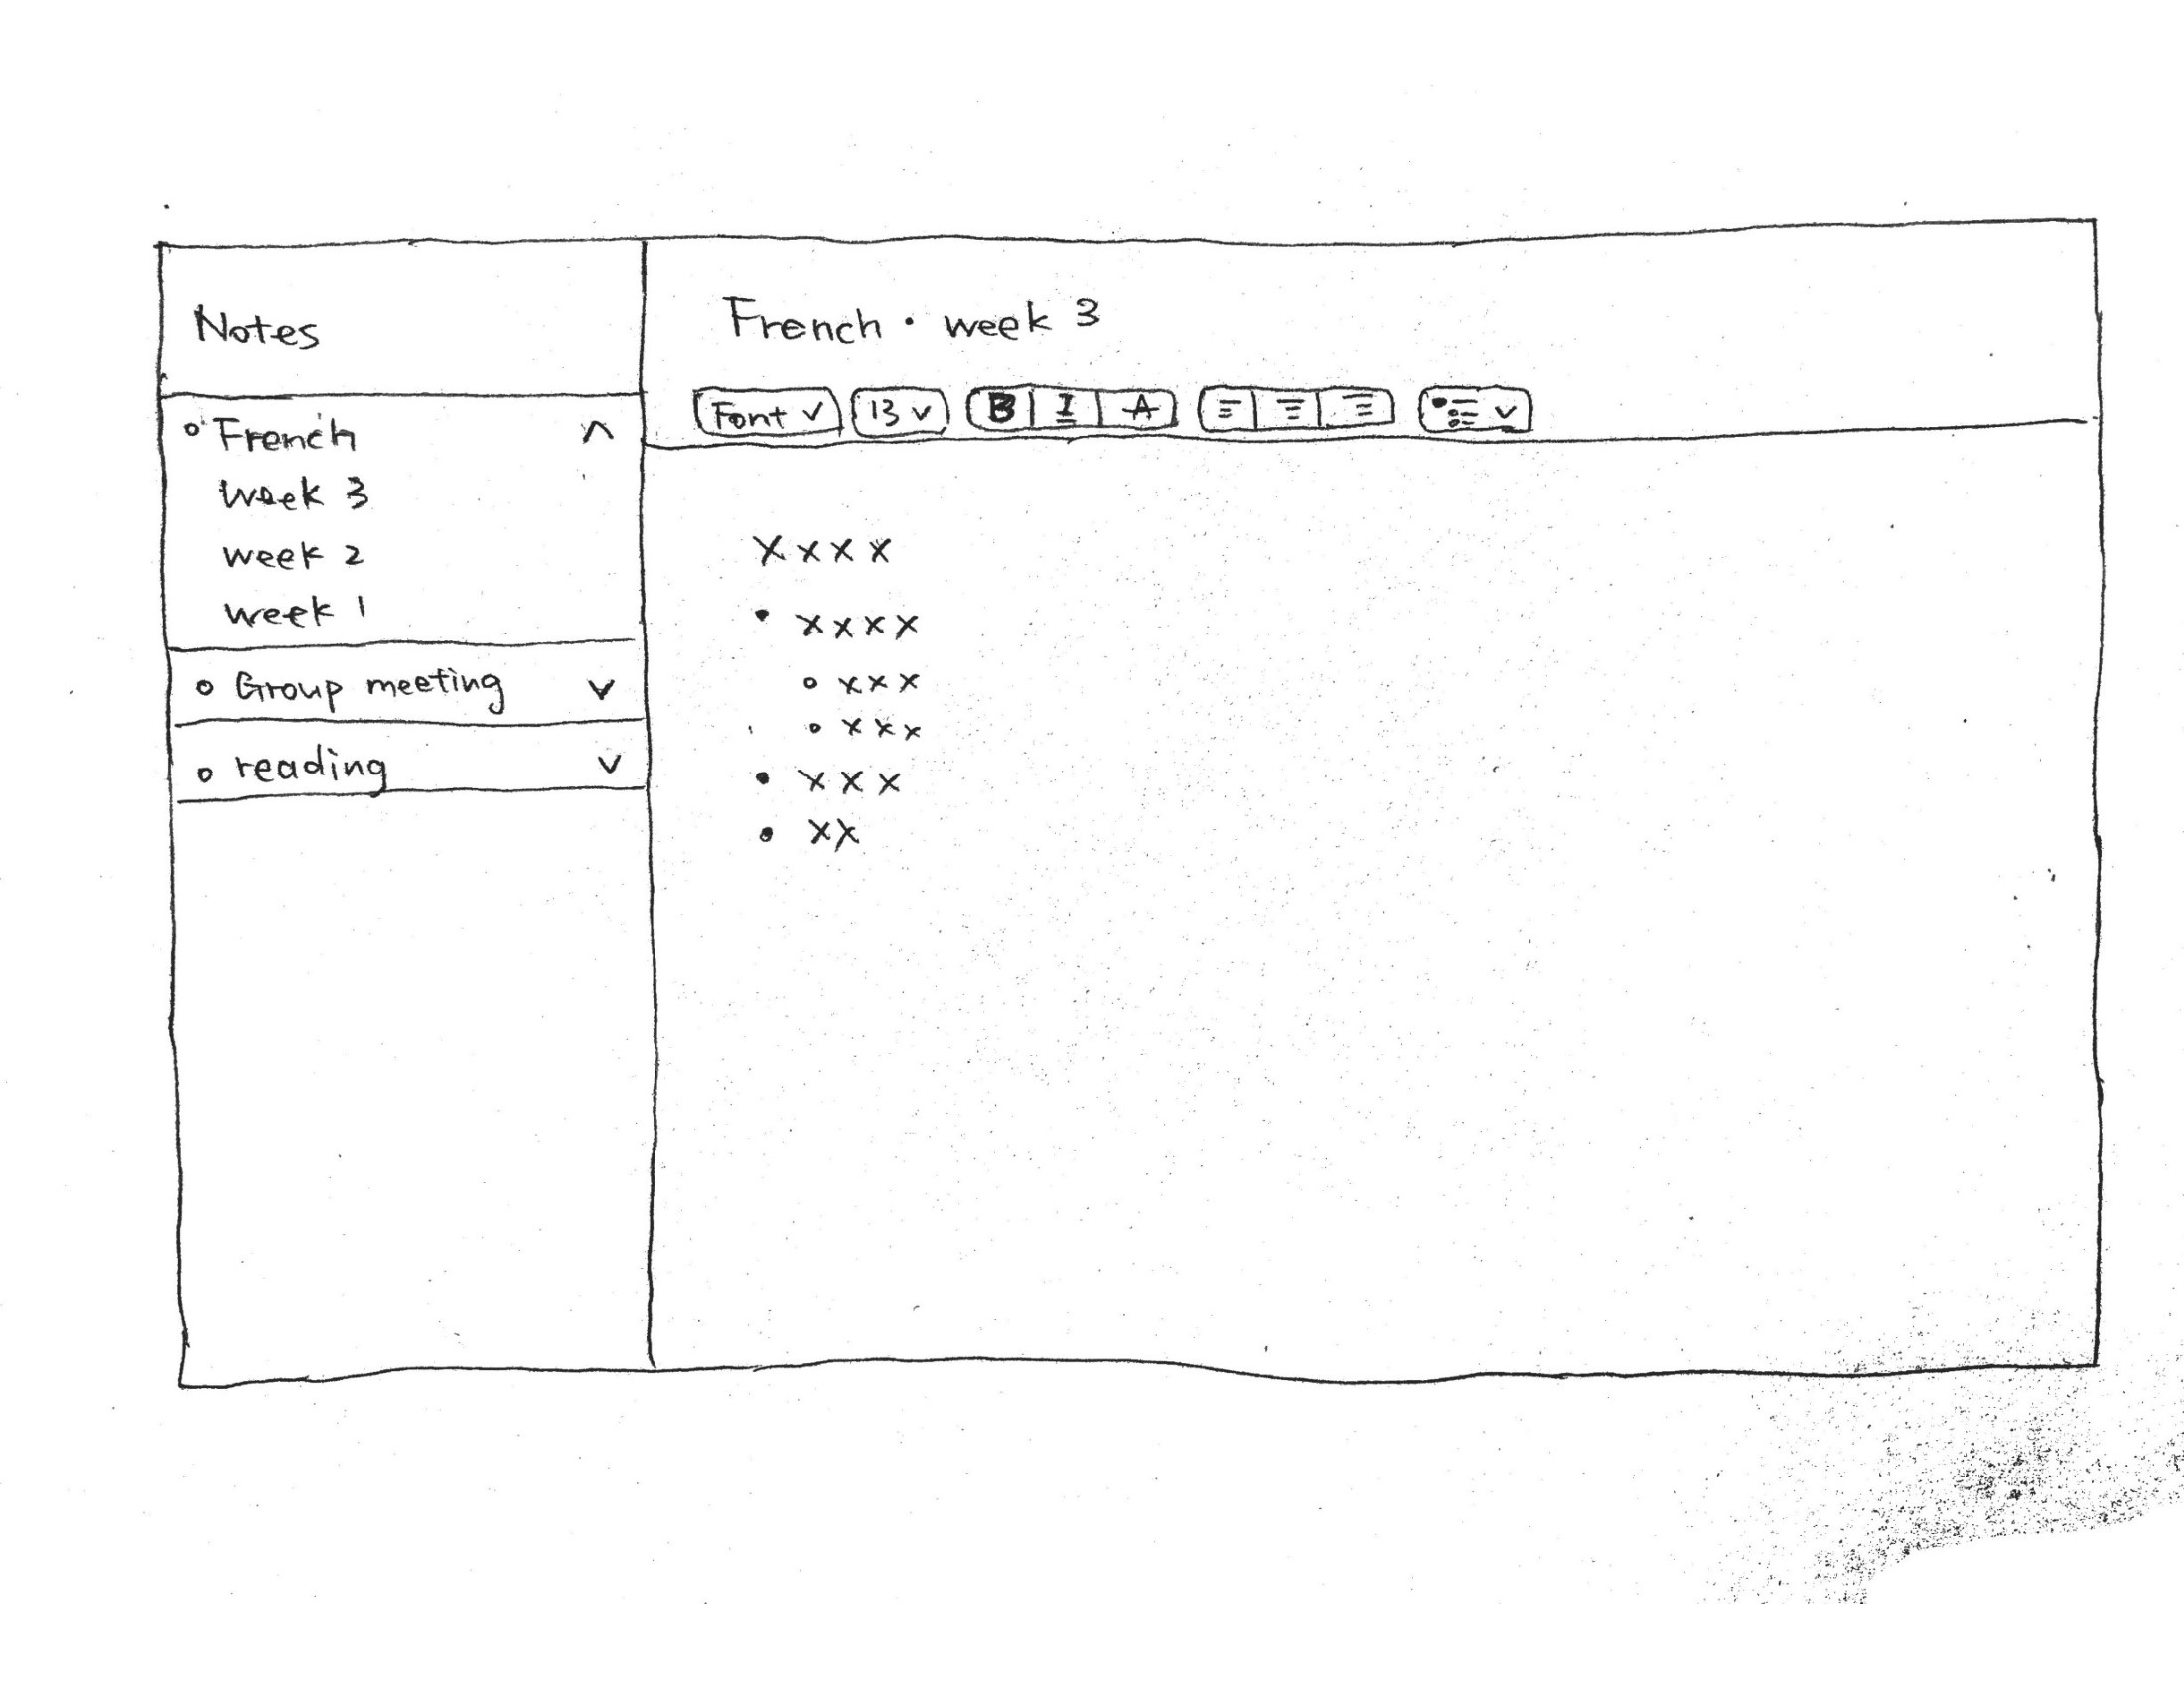 Notes
French
week 3
week 2
week 1
Group meeting
reading
French · week 3
Font 13 B I A
xxxx
• xxxx
○ xxx
○ xxx
• xxx
• xx